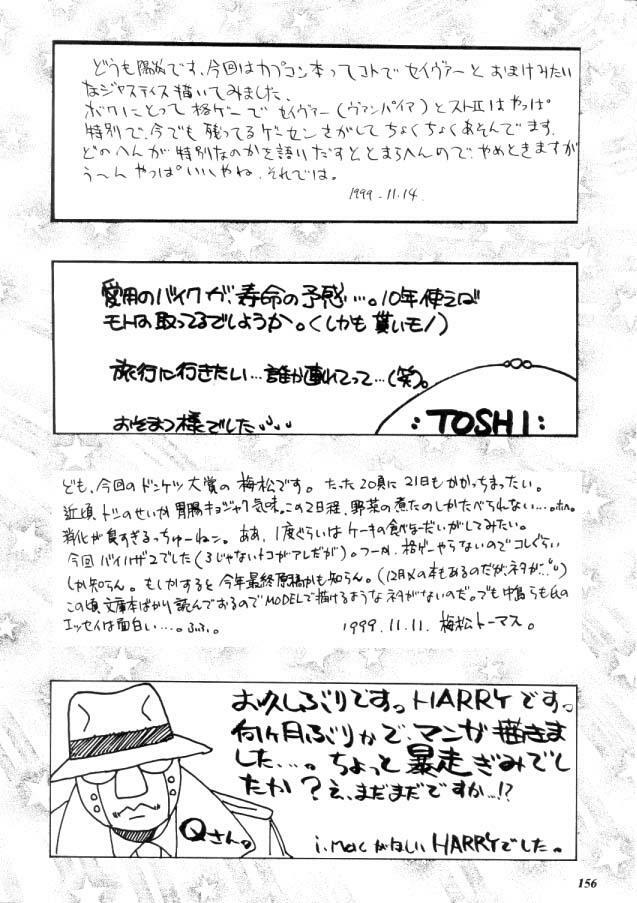 どうも陽炎です、今回はカプコン本ってコトでセイヴァーとおまけみたい
なジャスティス描いてみました、
ボクにとって格ゲーでセイヴァー(ヴァンパイア)とストⅡはやっぱ
特別で、今でも残ってるゲーセンさがしてちょくちょくあそんでます、
どのへんが特別なのかを語りだすととまらへんので、やめときますが
う〜んやっぱいいやね、それでは。
1999.11.14.
愛用のバイクが、寿命の予感…。10年使えば
モトは取ってるでしょうか。(しかも貰いモノ)
旅行に行きたい…誰か連れてって…(笑)。
おそまつ様でした
:TOSHI:
ども、今回のドンケツ大賞の梅松です。たった20頁に21日もかかっちまったい。
近頃、トシのせいか胃腸キョジャク気味。この2日程、野菜の煮たのしかたべられない…。
消化が良すぎるっちゅーねン。ああ、1度ぐらいはケーキの食べなーだいがしてみたい。
今回バイハザ2でした(3じゃないトコがアレだが)。つーか、格ゲーやらないのでコレぐらい
しか知らん。もしかすると今年最終原稿かも知らん。(12月〆の本もあるのだが、ネタが…)
この頃、文庫本ばかり読んでおるのでMODELで描けるようなネタがないのだ。でも中島らも氏の
エッセイは面白い…。ふふ。
1999.11.11. 梅松トーマス。
お久しぶりですっHARRYですっ
何ヶ月ぶりかで、マンガ描きま
した…。ちょっと暴走ぎみでし
たか?え、まだまだですか…!?
Qさん。
i.Macがほしい HARRYでした。
156